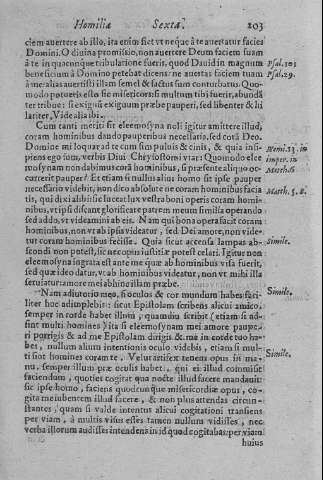 Homilia Sexta. 203
ciem auertere ab illo, ita enim fiet vt neque à te auertatur facies
Domini. O diuina promissio, non auertere Deum faciem suam
à te in quacunque tribulatione fueris, quod Dauid in magnum Psal. 101
beneficium à Domino petebat dicens: ne auertas faciem tuam Psal. 29.
à me: alias auertisti illam semel & factus sum conturbatus. Quo-
modo potueris esse sic misericors si multum tibi fuerit, abundã
ter tribue: si exiguũ exiguum præbe pauperi, sed libenter & hi
lariter, Vide alia ibi.
Cum tanti meriti sit eleemosyna noli igitur amittere illud,
coram hominibus dando pauperibus necessaria, sed corã Deo.
Domine mi loquar ad te cum sim puluis & cinis, & quia insi- Homi. 13. in
piens ego sum, verbis Diui Chrysostomi vtar: Quomodo elee imper. in
mosynam non dabimus corã hominibus, si præsente aliquo oc- Matth. 6
currerit pauper? Et etiam si nullus alius homo sit ipse pauper
necessario videbit, non dico absolute ne coram hominibus facia Matth. 5. 8.
tis, qui dixi alibi sic luceat lux vestra boni operis coram homi-
nibus, vt ipsi discant glorificare patrem meum similia operando:
sed addo, vt videamini ab eis. Nam qui bona opera facit coram
hominibus, non vt ab ipsis videatur, sed Dei amore, non vide-
tur coram hominibus fecisse. Quia sicut accensa lampas ab- Simile.
scondi non potest, sic nec opus iustitiæ potest celari. Igitur non
eleemosyna ingrata est ante me quæ ab hominibus visa fuerit,
sed quæ ideo datur, vt ab hominibus videatur, non vt mihi illa
seruiatur: amore mei abhinc illam præbe.
Nam adiutorio meo, si oculus & cor mundum habes faci- Simile.
liter hoc adimplebis: sicut Epistolam scribens alicui amico,
semper in corde habet illum, quamdiu scribit (etiam si ad-
sint multi homines) ita si eleemosynam mei amore paupe-
ri porrigis & ad me Epistolam dirigis & me in corde tuo ha-
bes, nullum alium intentionis oculo videbis, etiam si mul-
ti sint homines coram te. Velut artifex tenens opus in ma- Simile.
nu, semper illum præ oculis habet, qui ei illud commisit
faciendum, quoties cogitat quo modo ille illud facere mandauit:
sic ipse homo, faciens quodcunque misericordiæ opus, co-
gita me iubentem illud facere, & non plus attendas circun-
stantes, quam si valde intentus alicui cogitationi transiens
per viam, à multis visus esses tamen nullum vidisses, nec
verba illorum audisses intendens in id quod cogitabas: per viam
huius